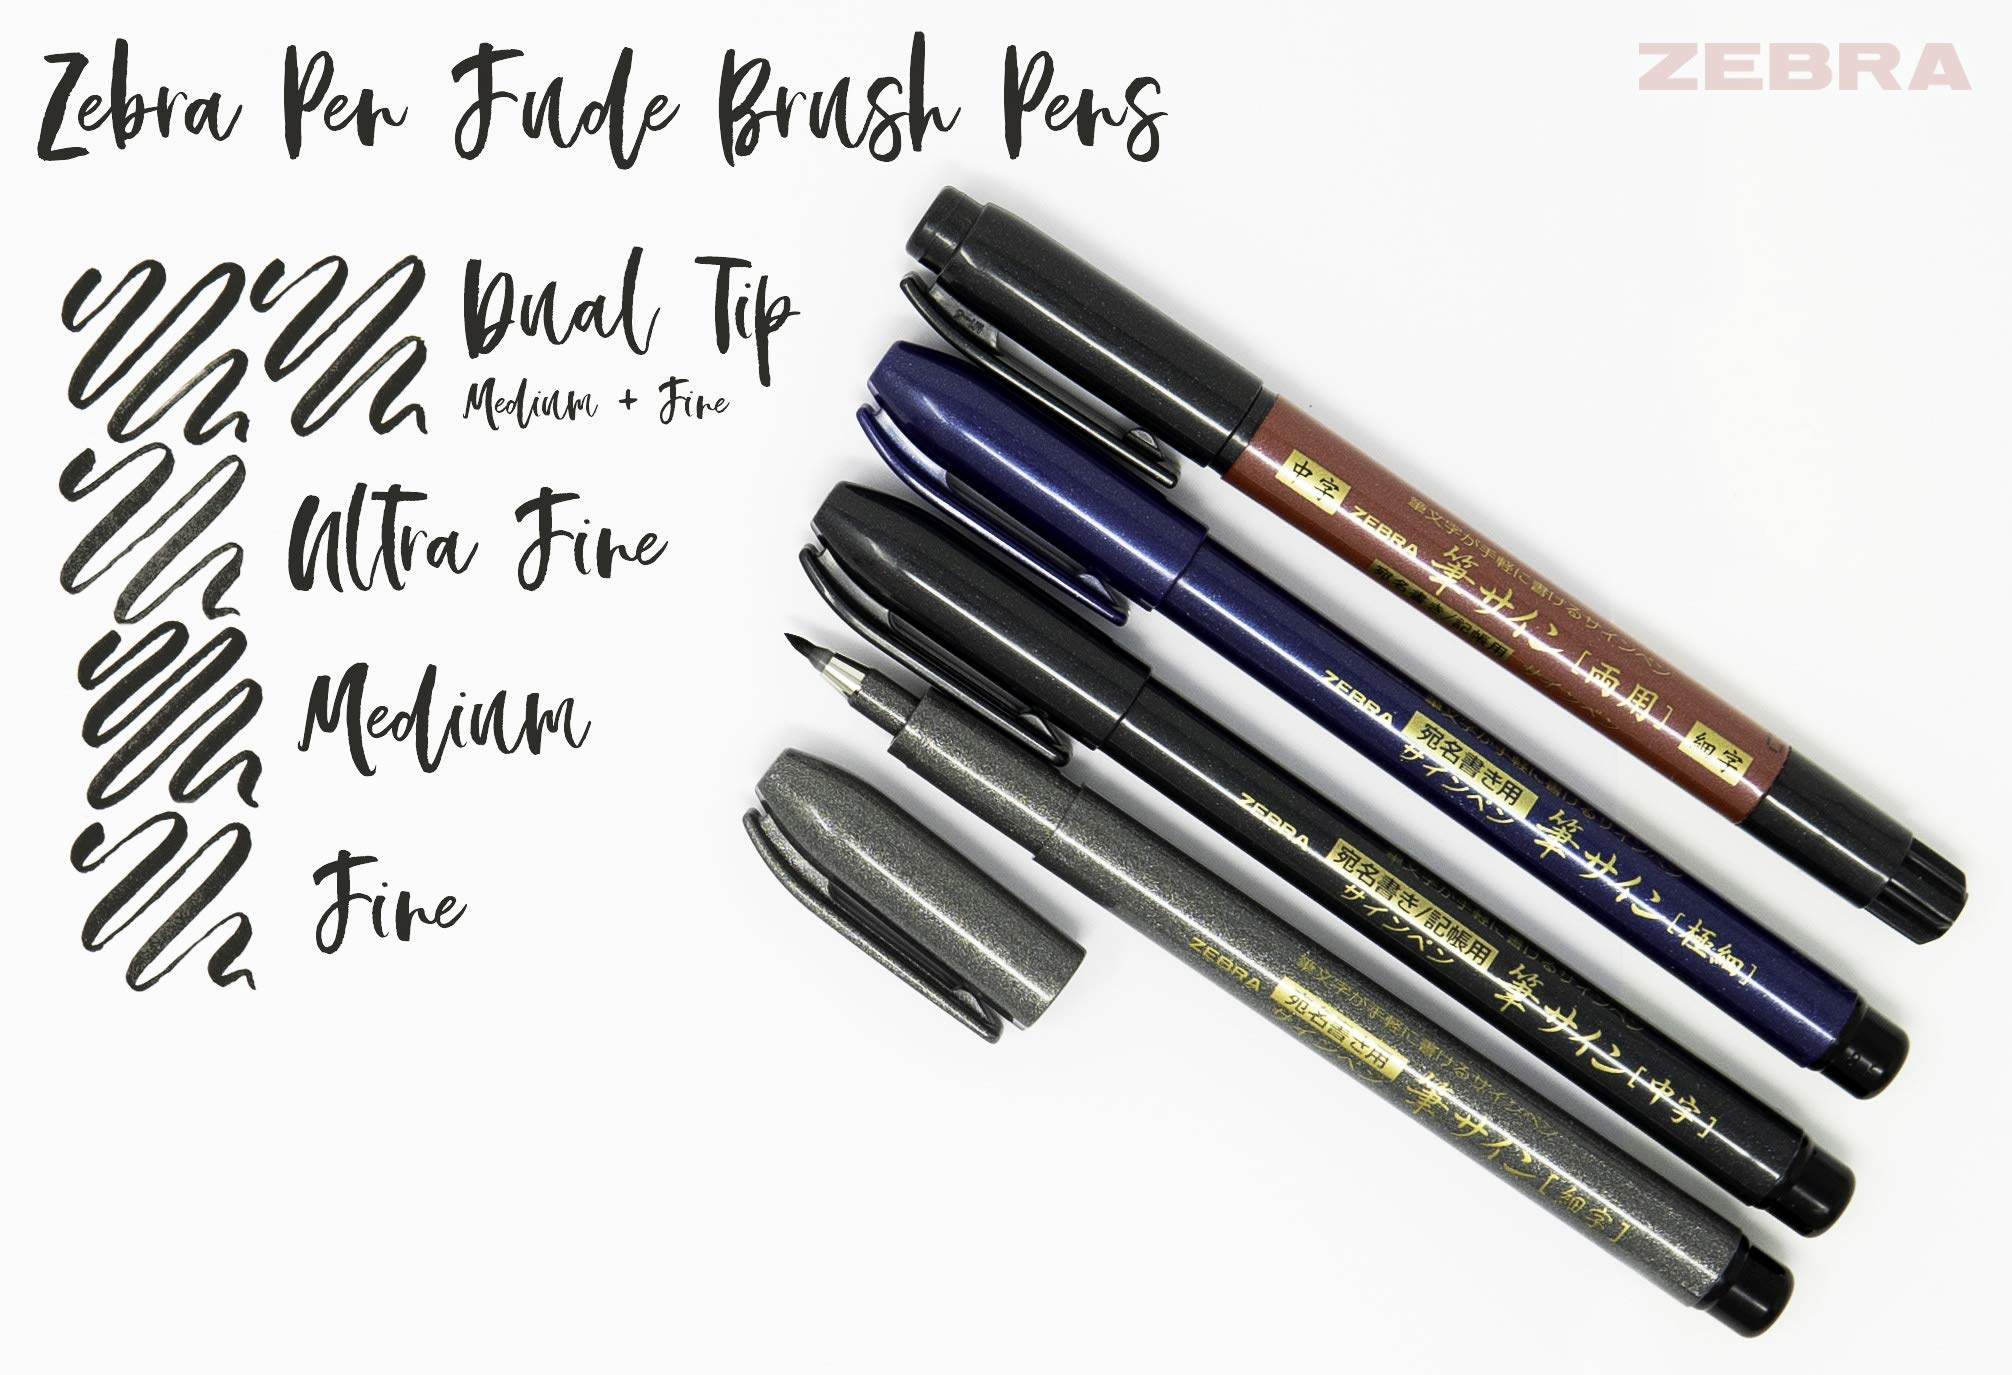 Zebra Pen Fude Brush Pens
ZEBRA
Dual Tip
Medium + Fine
Ultra Fine
Medium
Fine
中字
ZEBRA
筆文字が手軽に書けるサインペン
筆サイン[両用]
宛名書き/記帳用
サインペン
細字
ZEBRA
宛名書き用
サインペン
筆サイン[極細]
ZEBRA
宛名書き/記帳用
サインペン
筆サイン[中字]
ZEBRA
筆文字が手軽に書けるサインペン
宛名書き用
サインペン
筆サイン[細字]